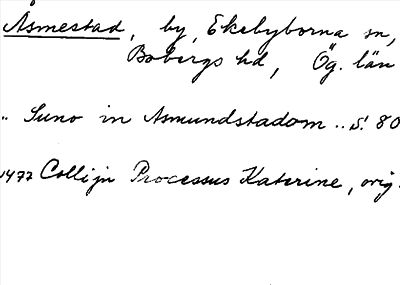 Åsmestad, by, Ekebyborna sn,
Bobergs hd, Ög. län
.. Suno in Asmundstadom .. S. 80
1477 Collijn Processus Katerine, orig.